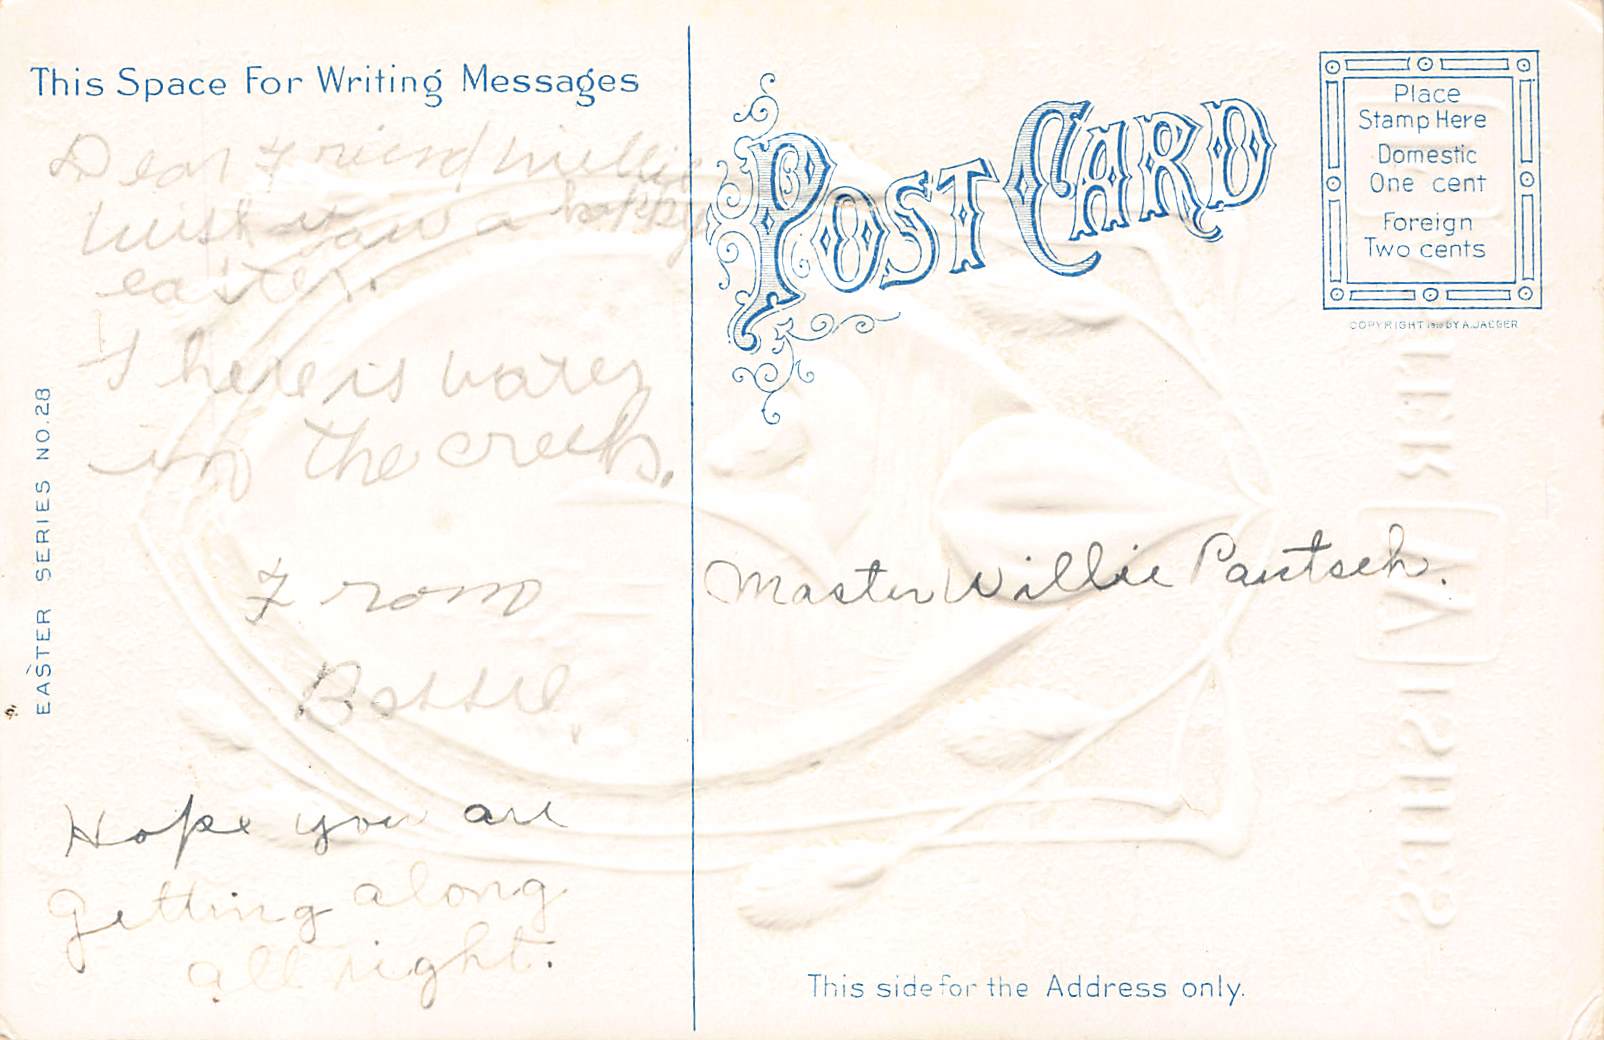 This Space For Writing Messages
Dear Friend Willie
wish you a happy
easter.
There is water
in the creek.
From
Hope you are
getting along
all right.
EASTER SERIES NO. 28
POST CARD
Place
Stamp Here
Domestic
One cent
Foreign
Two cents
COPYRIGHT BY A. JAEGER
Master Willie Pautsch.
This side for the Address only.